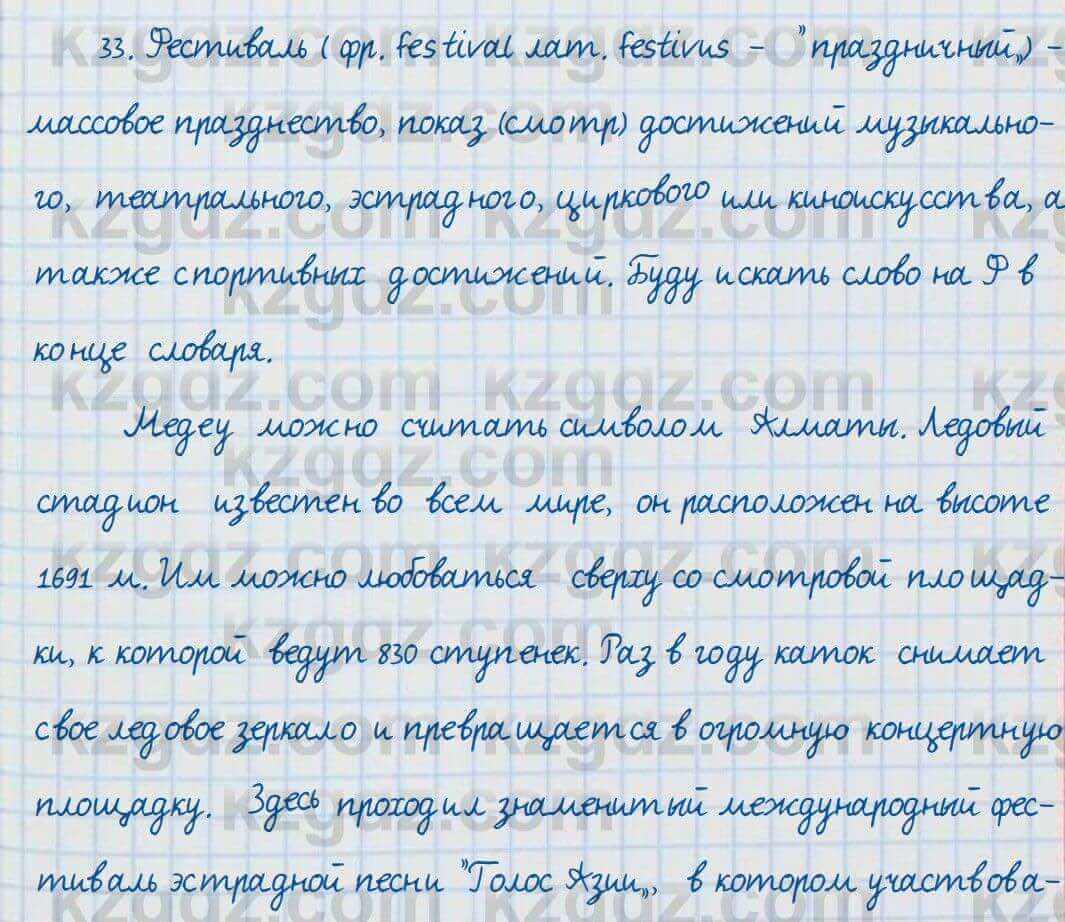 33. Фестиваль (фр. festival лат. festivus – "праздничный„) –
массовое празднество, показ (смотр) достижений музыкально-
го, театрального, эстрадного, циркового или киноискусства, а
также спортивных достижений. Буду искать слово на Ф в
конце словаря.
Медеу можно считать символом Алматы. Ледовый
стадион известен во всем мире, он расположен на высоте
1691 м. Им можно любоваться сверху со смотровой площад-
ки, к которой ведут 830 ступенек. Раз в году каток снимает
свое ледовое зеркало и превращается в огромную концертную
площадку. Здесь проходил знаменитый международный фес-
тиваль эстрадной песни "Голос Азии„, в котором участвова-